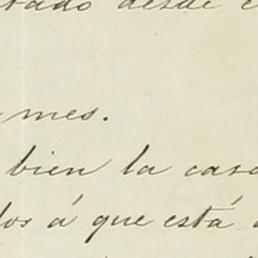 desde
mes.
bien la casa
los á que está